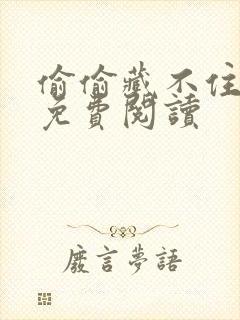 偷偷藏不住
免費閱讀
廢言夢語